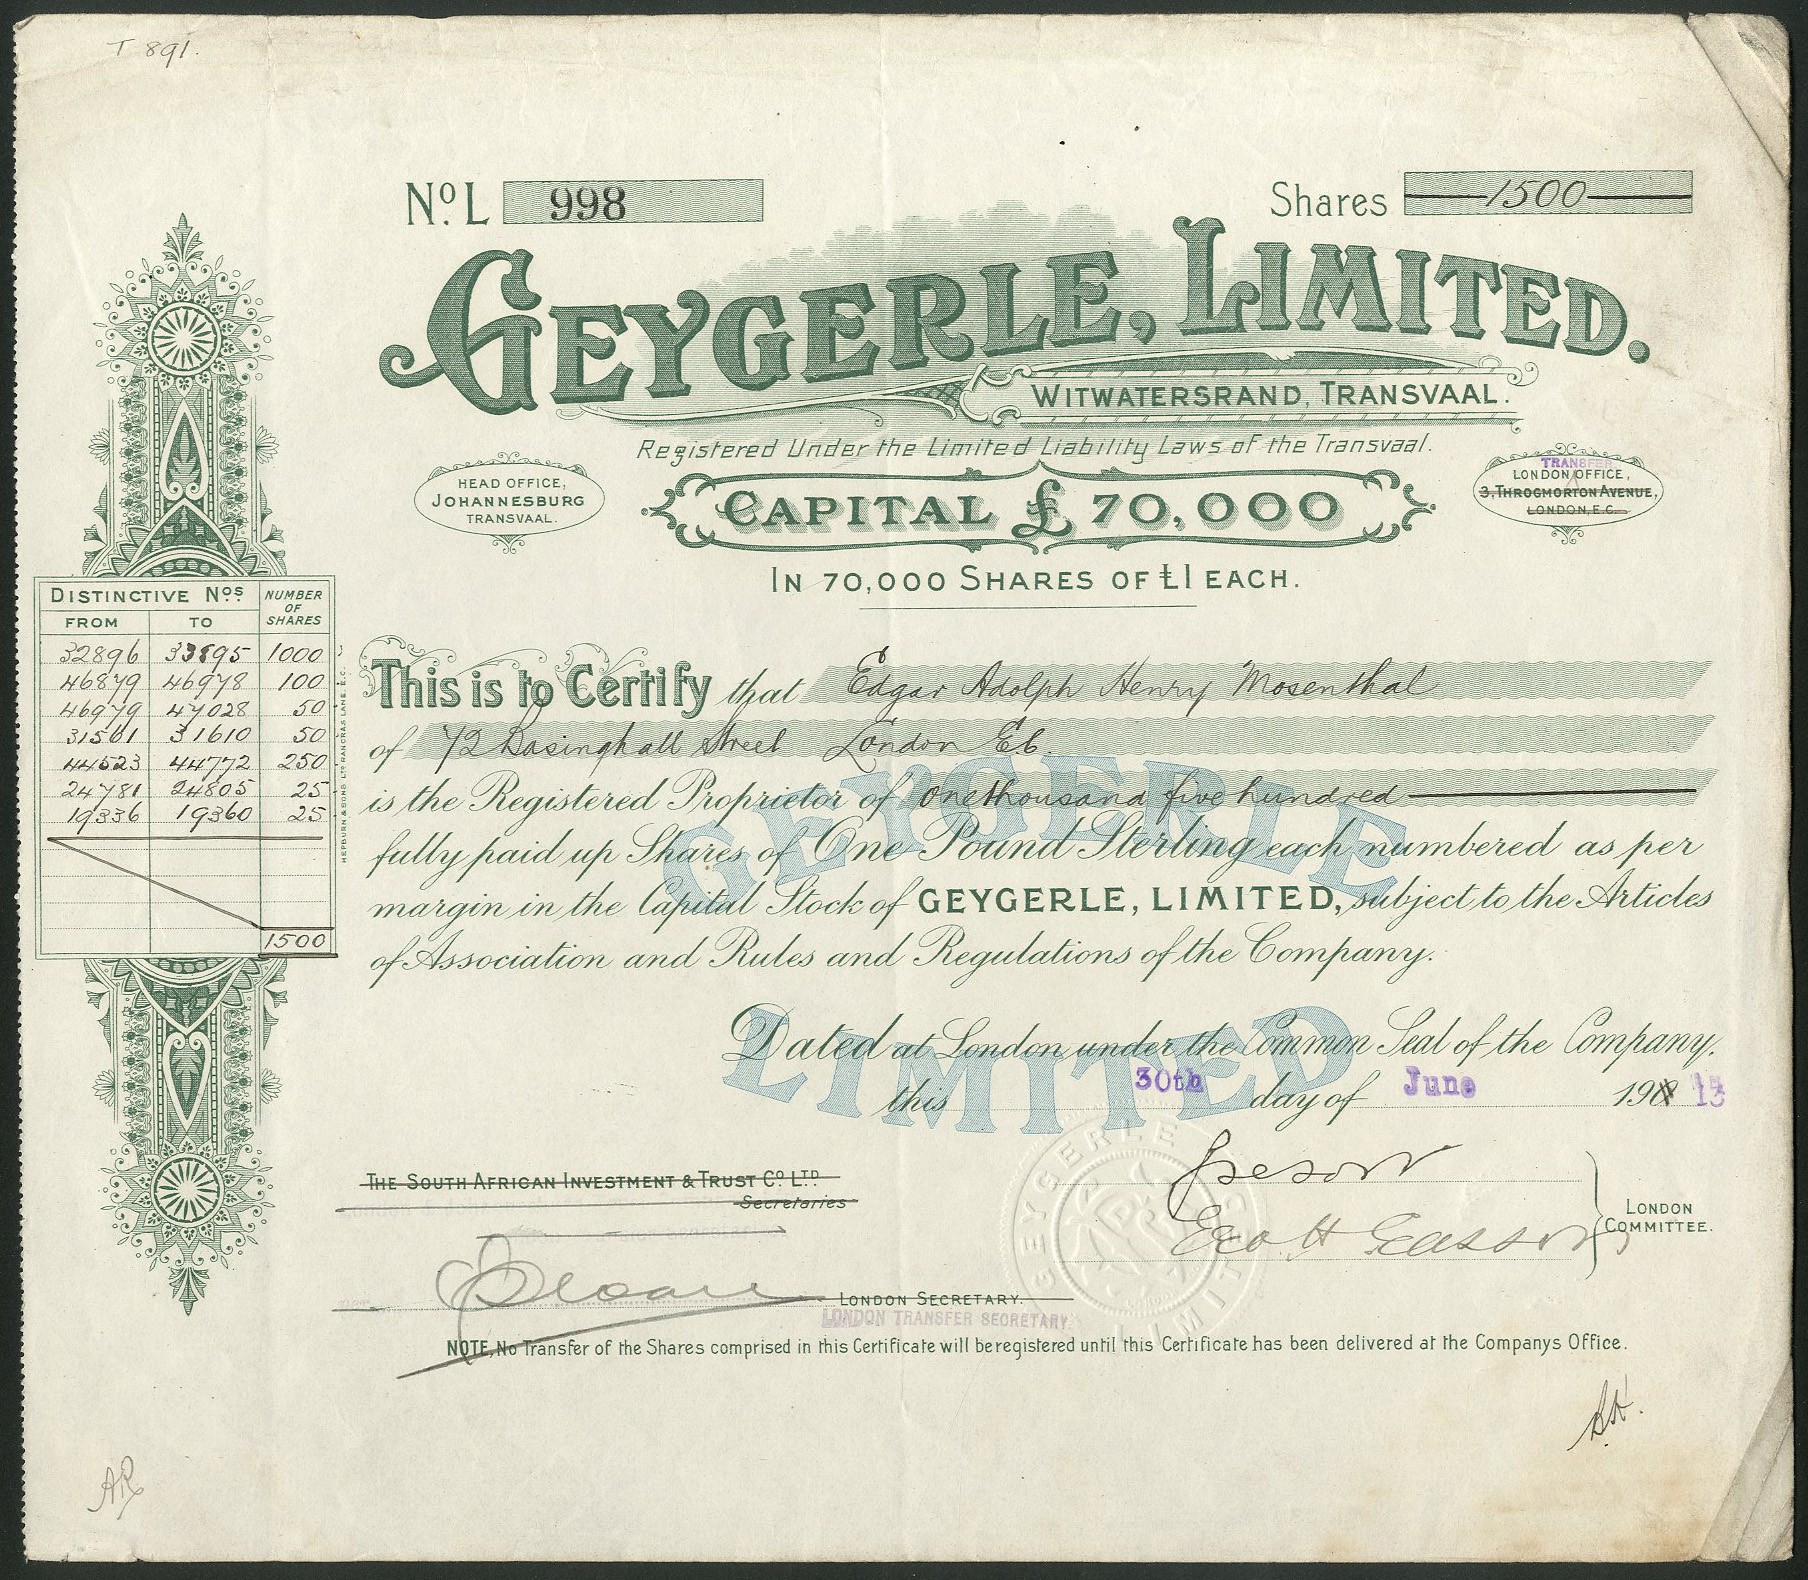 T 891.
No. L 998
Shares 1500
GEYGERLE, LIMITED.
WITWATERSRAND, TRANSVAAL.
Registered Under the Limited Liability Laws of the Transvaal.
HEAD OFFICE,
JOHANNESBURG
TRANSVAAL.
CAPITAL £ 70,000
TRANSFER
LONDON OFFICE,
3, THROGMORTON AVENUE,
LONDON, E.C.
IN 70,000 SHARES OF £1 EACH.
DISTINCTIVE Nos. NUMBER OF SHARES
FROM TO
32896 33895 1000
46879 46978 100
46979 47028 50
31561 31610 50
44523 44772 250
24781 24805 25
19336 19360 25
1500
HEPBURN & SONS LTD PANCRAS LANE. E.C.
This is to Certify that Edgar Adolph Henry Mosenthal
of 72 Basinghall Street London E.C.
is the Registered Proprietor of one thousand five hundred
fully paid up Shares of One Pound Sterling each numbered as per
margin in the Capital Stock of GEYGERLE, LIMITED, subject to the Articles
of Association and Rules and Regulations of the Company.
GEYGERLE
LIMITED
Dated at London under the Common Seal of the Company,
this 30th day of June 190
THE SOUTH AFRICAN INVESTMENT & TRUST CO. LTD.
Secretaries
Geo H
LONDON
COMMITTEE.
Sloan
LONDON SECRETARY.
LONDON TRANSFER SECRETARY.
GEYGERLE LIMITED
NOTE, No Transfer of the Shares comprised in this Certificate will be registered until this Certificate has been delivered at the Companys Office.
AR